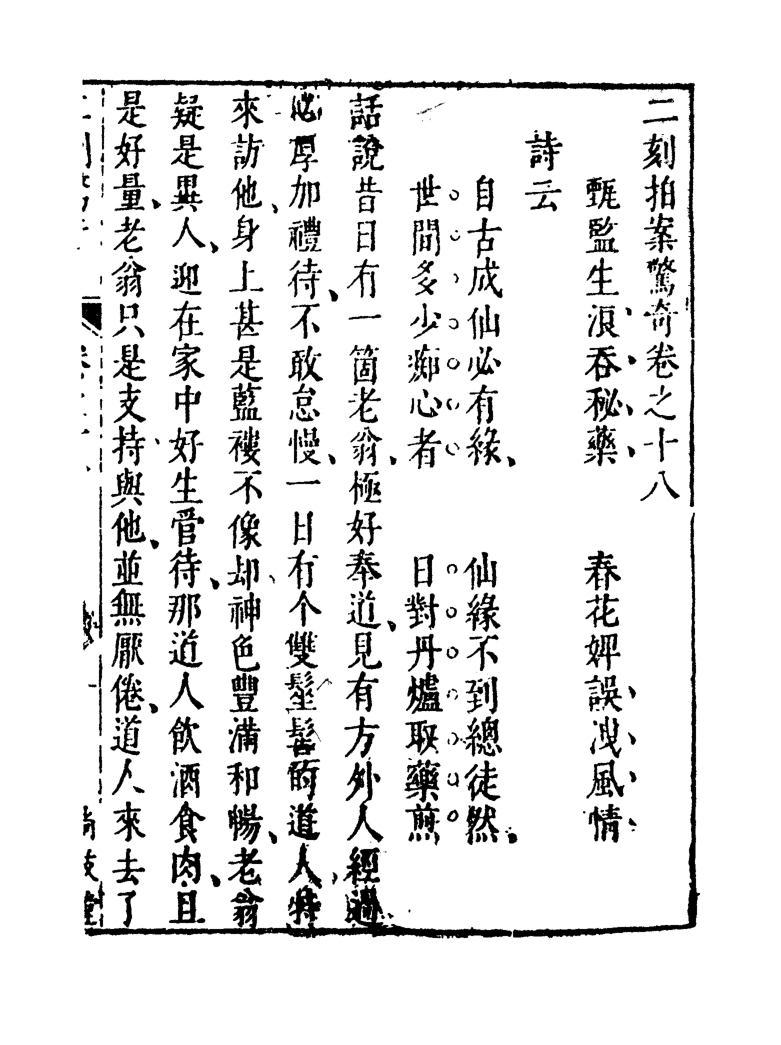 二刻拍案驚奇卷之十八
甄監生浪吞秘藥　春花婢誤洩風情
詩云
自古成仙必有緣、仙緣不到總徒然、
世間多少痴心者　日對丹爐取藥煎
話說昔日有一箇老翁、極好奉道、見有方外人經過
必厚加禮待、不敢怠慢、一日有个雙髽髻的道人、特
來訪他、身上甚是藍褸不像、却神色豐滿和暢、老翁
疑是異人、迎在家中好生管待、那道人飲酒食肉、且
是好量、老翁只是支持與他、並無厭倦、道人來去了